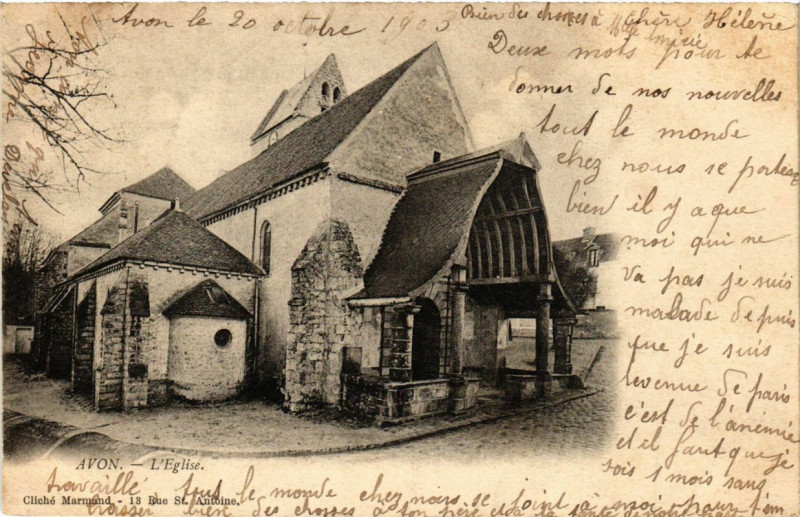 Avon le 20 octobre 1903
Bien des choses à Mlle
Chère Hélène
Deux mots pour te
donner de nos nouvelles
tout le monde
chez nous se porte
bien il y a que
moi qui ne
va pas je suis
malade depuis
que je suis
revenue de paris
c'est de l'anémie
et il faut que je
sois 1 mois sans
travaillé tout le monde chez nous se joint à moi pour t'em
brasser bien des choses à ton père et à ta tante
AVON. — L'Eglise.
Cliché Marmand - 13 Rue St. Antoine.